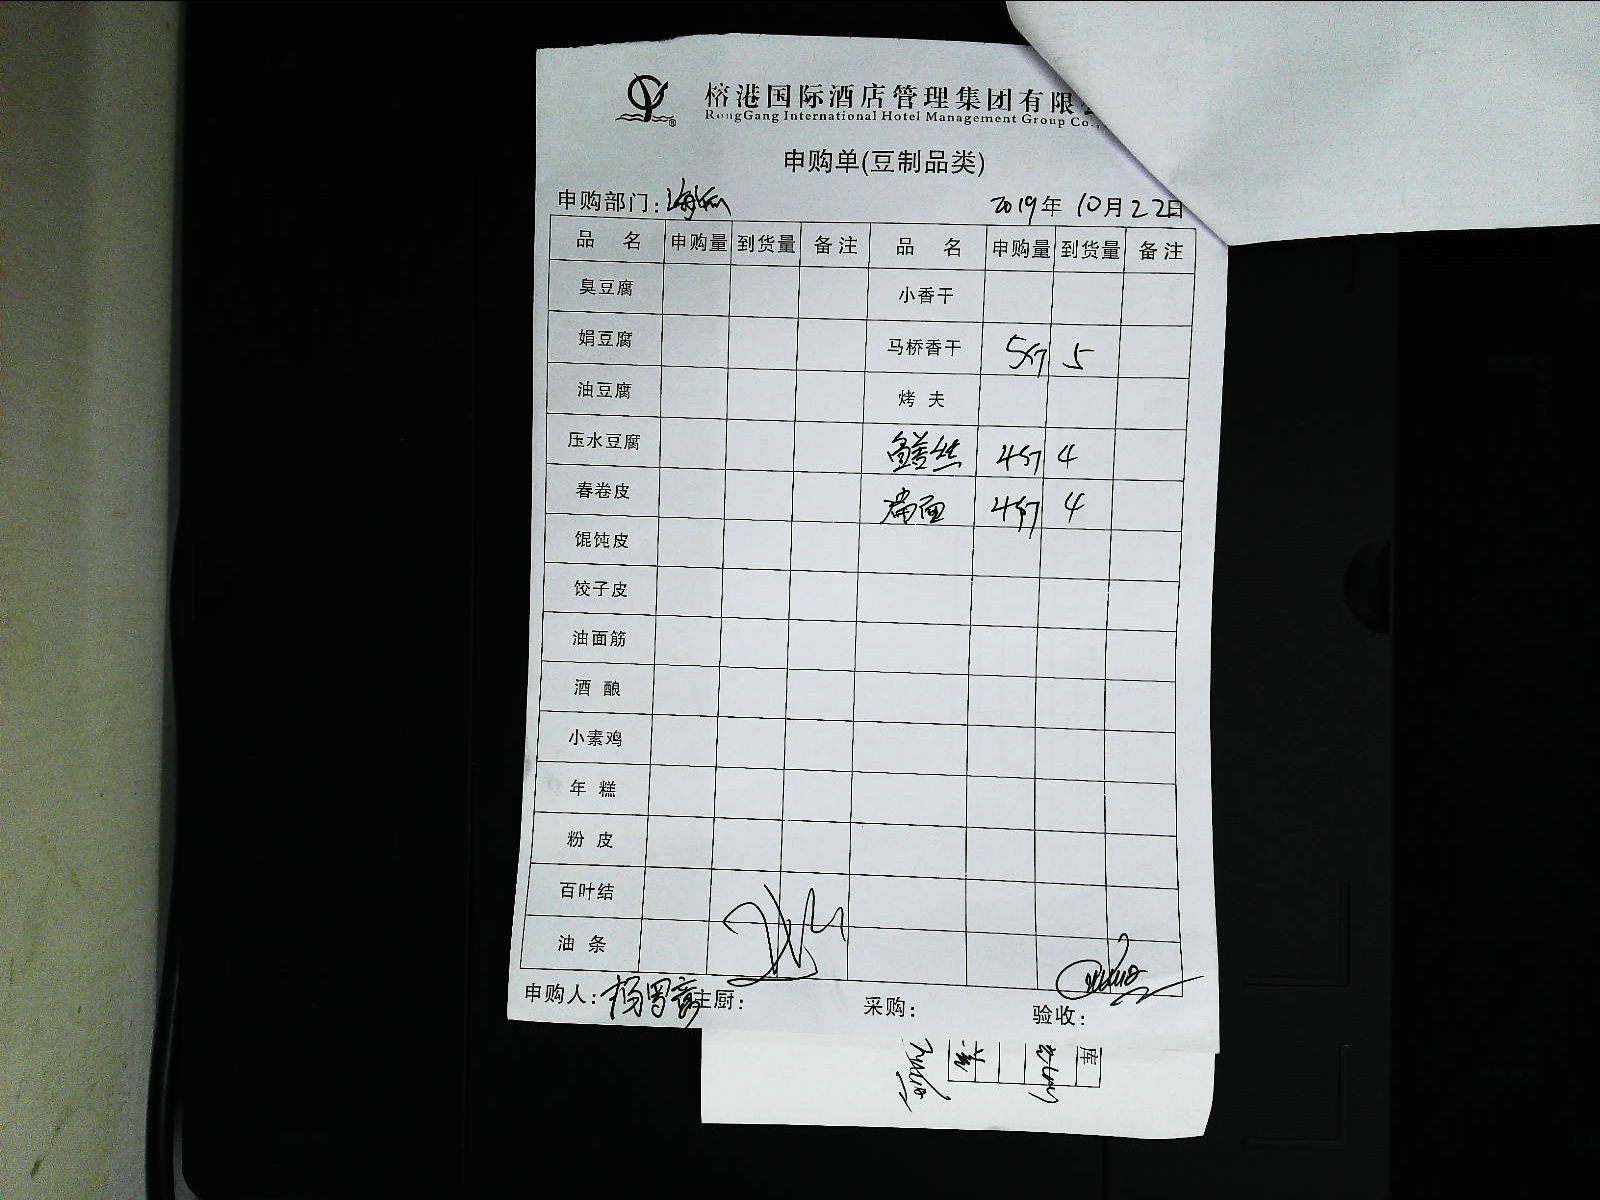 榕港国际酒店管理集团有限
RongGang International Hotel Management Group Co.,
申购单(豆制品类)
申购部门: 2019年 10月22日
品 名 申购量 到货量 备注 品 名 申购量 到货量 备注
臭豆腐 小香干
娟豆腐 马桥香干 5份 5
油豆腐 烤 夫
压水豆腐 鳝丝 4份 4
春卷皮 4份 4
馄饨皮
饺子皮
油面筋
酒 酿
小素鸡
年 糕
粉 皮
百叶结
油 条
申购人: 主厨: 采购: 验收:
库